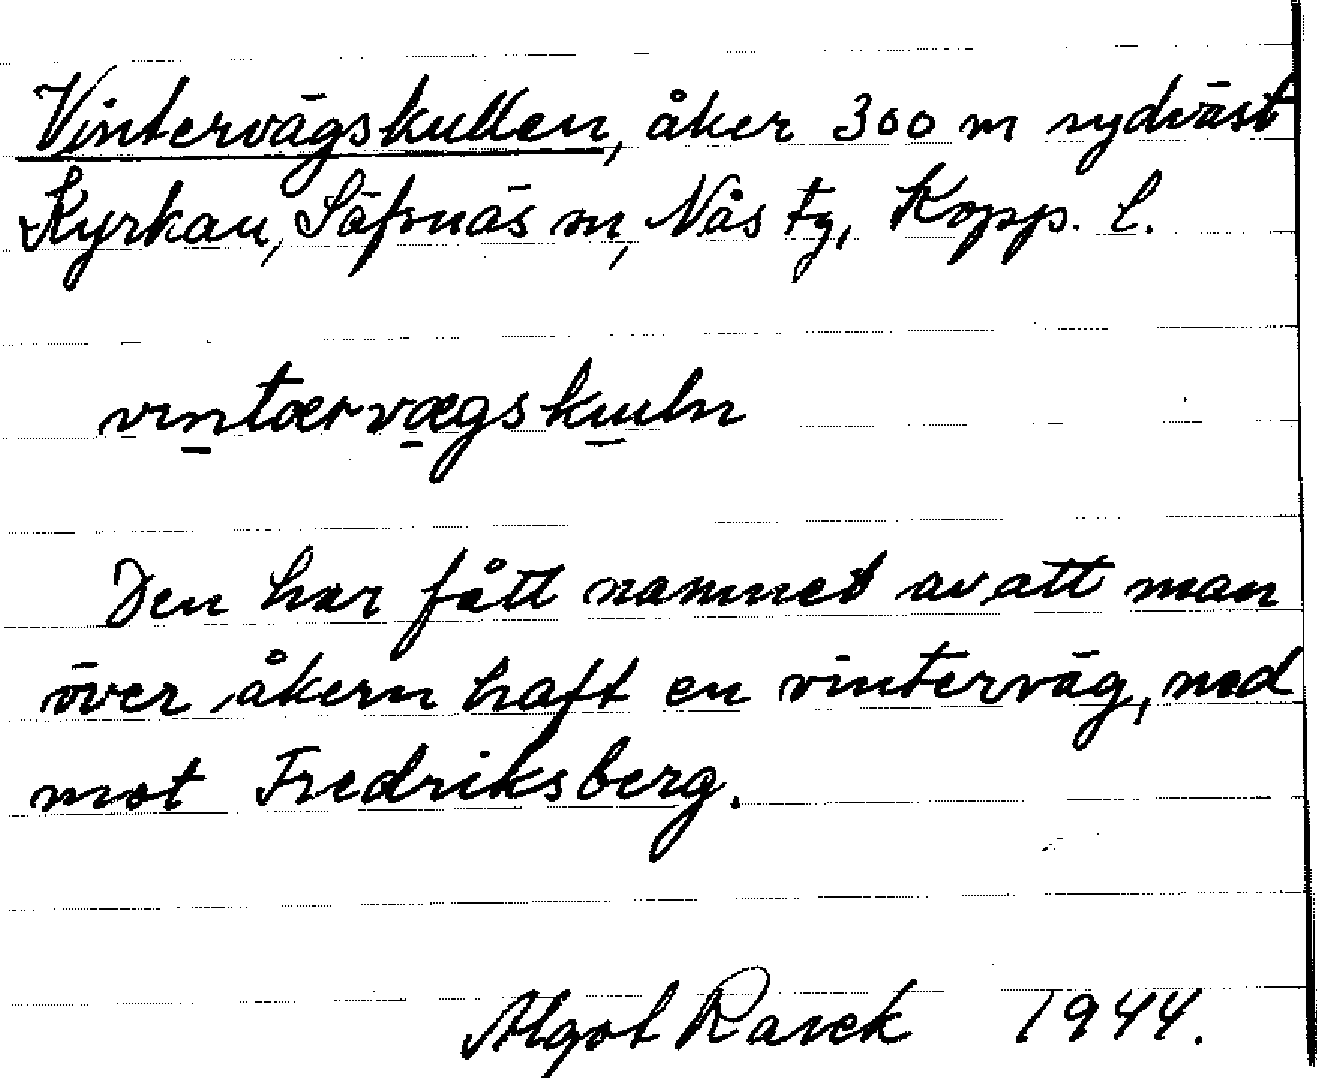 Vintervägskullen, åker 300 m sydväst
Kyrkan, Säfsnäs sn, Nås tg, Kopp. l.
vintærvægskuuln
Den har fått namnet av att man
över åkern haft en vinterväg, ned
mot Fredriksberg.
Algot Rasck 1944.